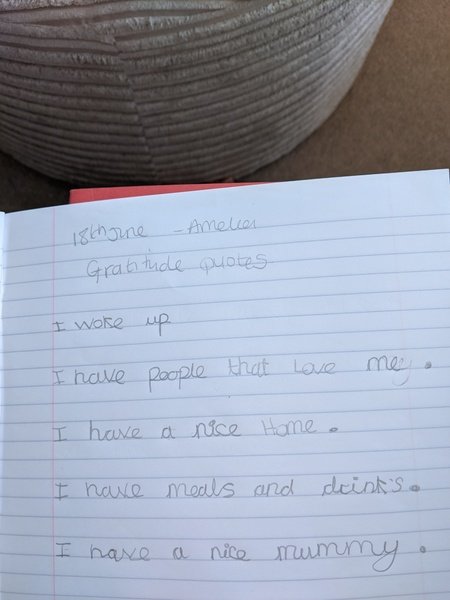 18th June - Amelia
Gratitude quotes
I woke up
I have people that Love me.
I have a nice Home.
I have meals and drinks.
I have a nice mummy.